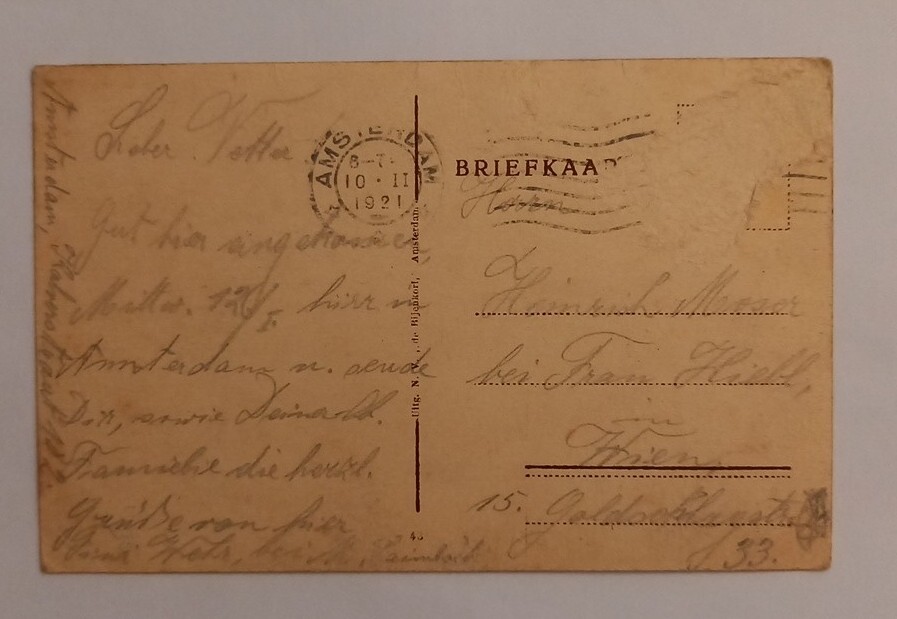 Lieber Vetter
Gut hier angekommen,
Mittw. 12/I. hier in
Amsterdam u. sende
Dir, sowie Deiner lb.
Familie die herzl.
Grüße von hier
bei M.
Amsterdam,
AMSTERDAM
8-7
10 · II
1921
Uitg. N. de Bijenkorf, Amsterdam
46
BRIEFKAA
Herrn
Heinrich Moser
bei Frau Hiebl,
in
Wien,
15. Goldschlagstr.
33.